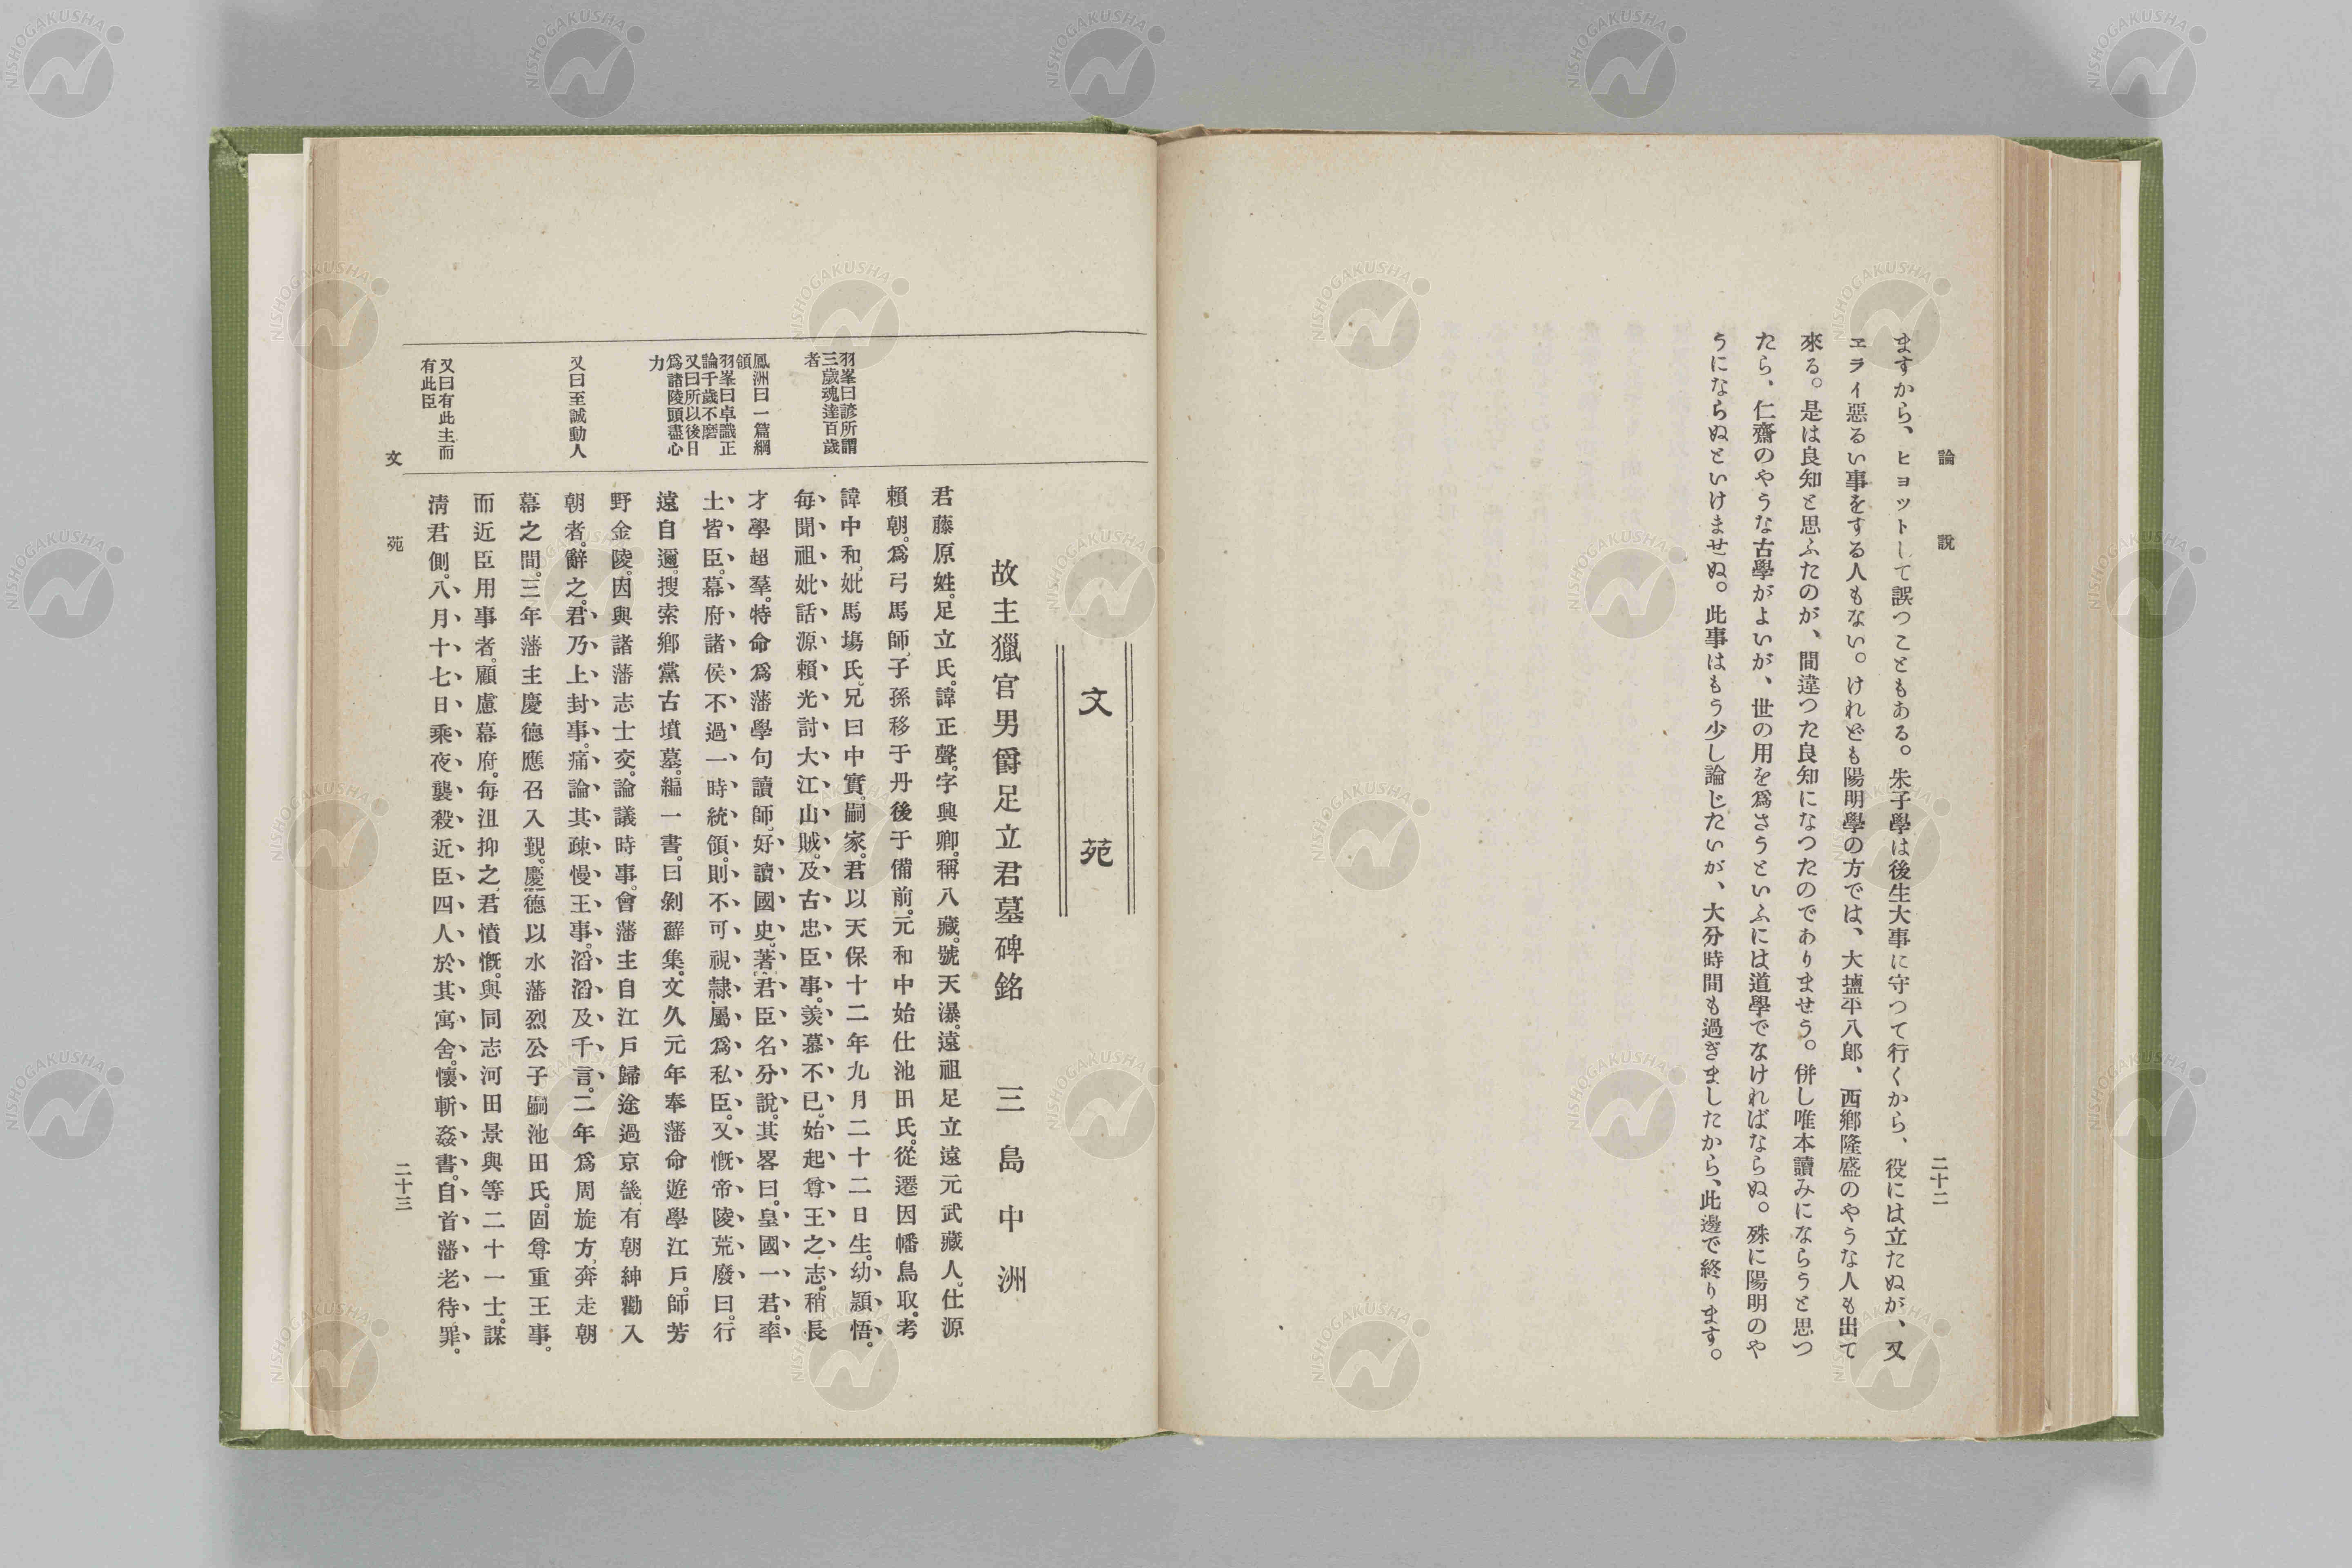 論説
二十二
ますから、ヒョットして誤つこともある。朱子學は後生大事に守つて行くから、役には立たぬが、又
ヱライ惡るい事をする人もない。けれども陽明學の方では、大塩平八郎、西郷隆盛のやうな人も出て
來る。是は良知と思ふたのが、間違つた良知になつたのでありませう。併し唯本讀みにならうと思つ
たら、仁齋のやうな古學がよいが、世の用を爲さうといふには道學でなければならぬ。殊に陽明のや
うにならぬといけませぬ。此事はもう少し論じたいが、大分時間も過ぎましたから、此邊で終ります。
文苑
故主獵官男爵足立君墓碑銘
三島中洲
君藤原姓。足立氏。諱正聲。字興卿。稱八藏。號天瀑。遠祖足立遠元武藏人。仕源
賴朝。爲弓馬師、子孫移于丹後于備前。元和中始仕池田氏。從遷因幡鳥取。考
諱中和、妣馬塲氏、兄曰中實。嗣家。君以天保十二年九月二十二日生。幼頴悟。
每聞祖妣話源賴光討大江山賊。及古忠臣事。羨慕不已。始起尊王之志。稍長
才學超羣。特命爲藩學句讀師、好讀國史。著君臣名分說。其畧曰。皇國一君。率
土皆臣。幕府諸侯不過一時統領。則不可視隷屬爲私臣。又慨帝陵荒廢曰。行
遠自邇。搜索鄉黨古墳墓。編一書。曰剝蘚集。文久元年奉藩命遊學江戶。師芳
野金陵。因與諸藩志士交。論議時事。會藩主自江戶歸途過京畿、有朝紳勸入
朝者。辭之。君乃上封事。痛論其疎慢王事。滔滔及千言。二年爲周旋方、奔走朝
幕之間。三年藩主慶德應召入覲。慶德以水藩烈公子嗣池田氏。固尊重王事。
而近臣用事者。顧慮幕府。每沮抑之、君憤慨。與同志河田景與等二十一士。謀
淸君側。八月十七日乘夜襲殺近臣四人於其寓舍。懷斬姦書。自首藩老待罪。
羽峯曰諺所謂
三歲魂達百歲
者
鳳洲曰一篇綱
領
羽峯曰卓識正
論千歲不磨
又曰所以後日
爲諸陵頭盡心
力
又曰至誠動人
又曰有此主而
有此臣
文苑
二十三
NISHOGAKUSHA